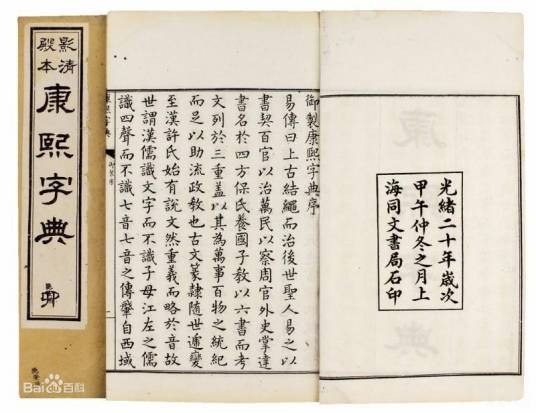 光緒二十年歲次
甲午仲冬之月上
海同文書局石印
御製康熙字典序
易傳曰上古結繩而治後世聖人易之以
書契百官以治萬民以察周官外史掌達
書名於四方保氏養國子敎以六書而考
文列於三重蓋以其為萬事百物之統紀
而足以助流政敎也古文篆隸隨世遞變
至漢許氏始有說文然重義而略於音故
世謂漢儒識文字而不識子母江左之儒
識四聲而不識七音七音之傳肇自西域
康熙字典
影清
殿本
康熙字典
Bai百科